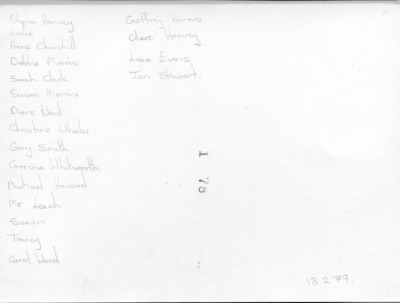 Stephen Harvey
Anne Churchill
Debbie Morris
Sarah Clark
Susan Morris
Diane Ward
Christine Whales
Gary Smith
Corrina Whitworth
Michael Howard
Mr Leach
Susan
Tracey
Carol Ward
Geoffrey Harris
Clare Harvey
Lisa Evans
Ian Stewart.
1 70
13 2 79.